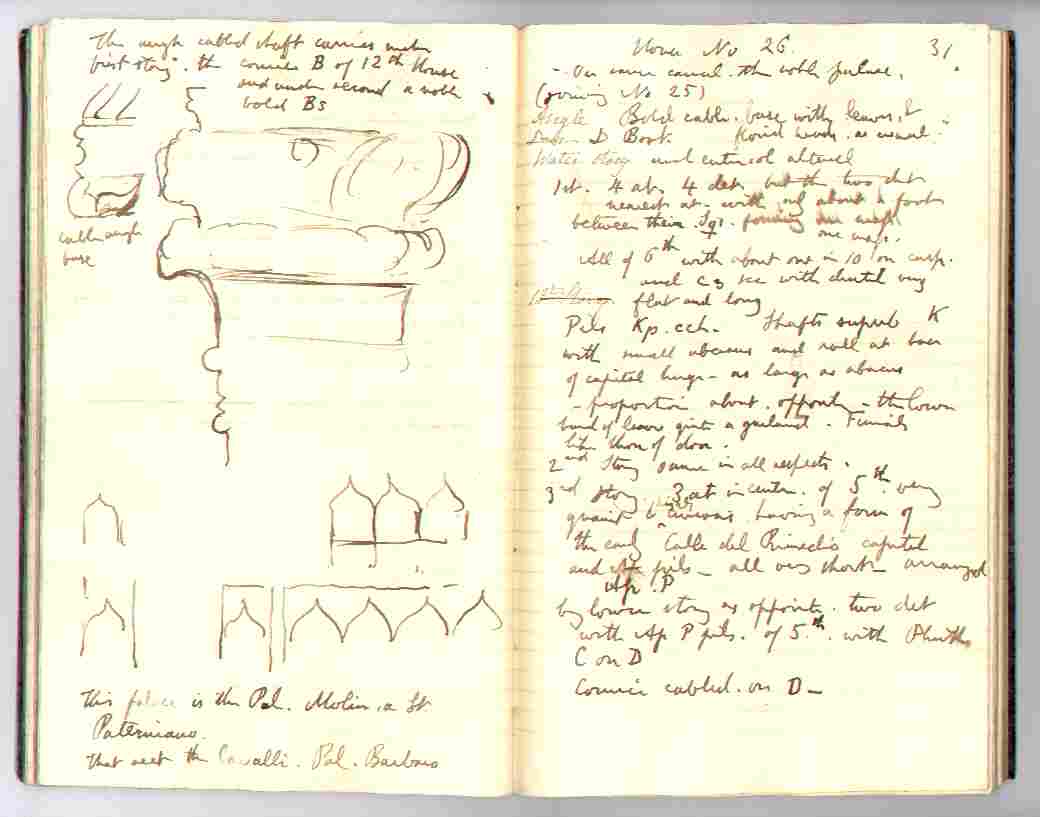 The angle cabled shaft carries under
first story. the cornice B of 12th House
and under second a noble
bold Bs
cable angle
base
This palace is the Pal. Molin, a St
Paterniano.
that next the Cavalli. Pal. Barbaro
House No 26.
31.
- On same canal. the noble palace,
(joining No 25)
Angle Bold cable. base with leaves, &
Door D Book. as usual.
Water story and entresol altered
1st. 4 at. 4 det but the two det
nearest at. with only about a foot
between them. forming
one
All of 6th with about one in 10 on cusp.
and C3 see with dentil very
1st Story flat and long
Pils Kp. cch. Shafts superb K
with small abacus and roll at base
of capital huge - as large as abacus
- proportion about. opposite - the lower
band of leaves quite a garland. Finials
like those of door.
2nd Story same in all respects.
3rd Story. 3 at in centre. of 5th. very
quaint & curious having a form of
the early Calle del Rimedio capital
and pils - all very short - arranged
Ap. P
by lower story as opposite. two det
with Ap P pils. of 5th. with Plinths
C on D
Cornice cabled. on D -